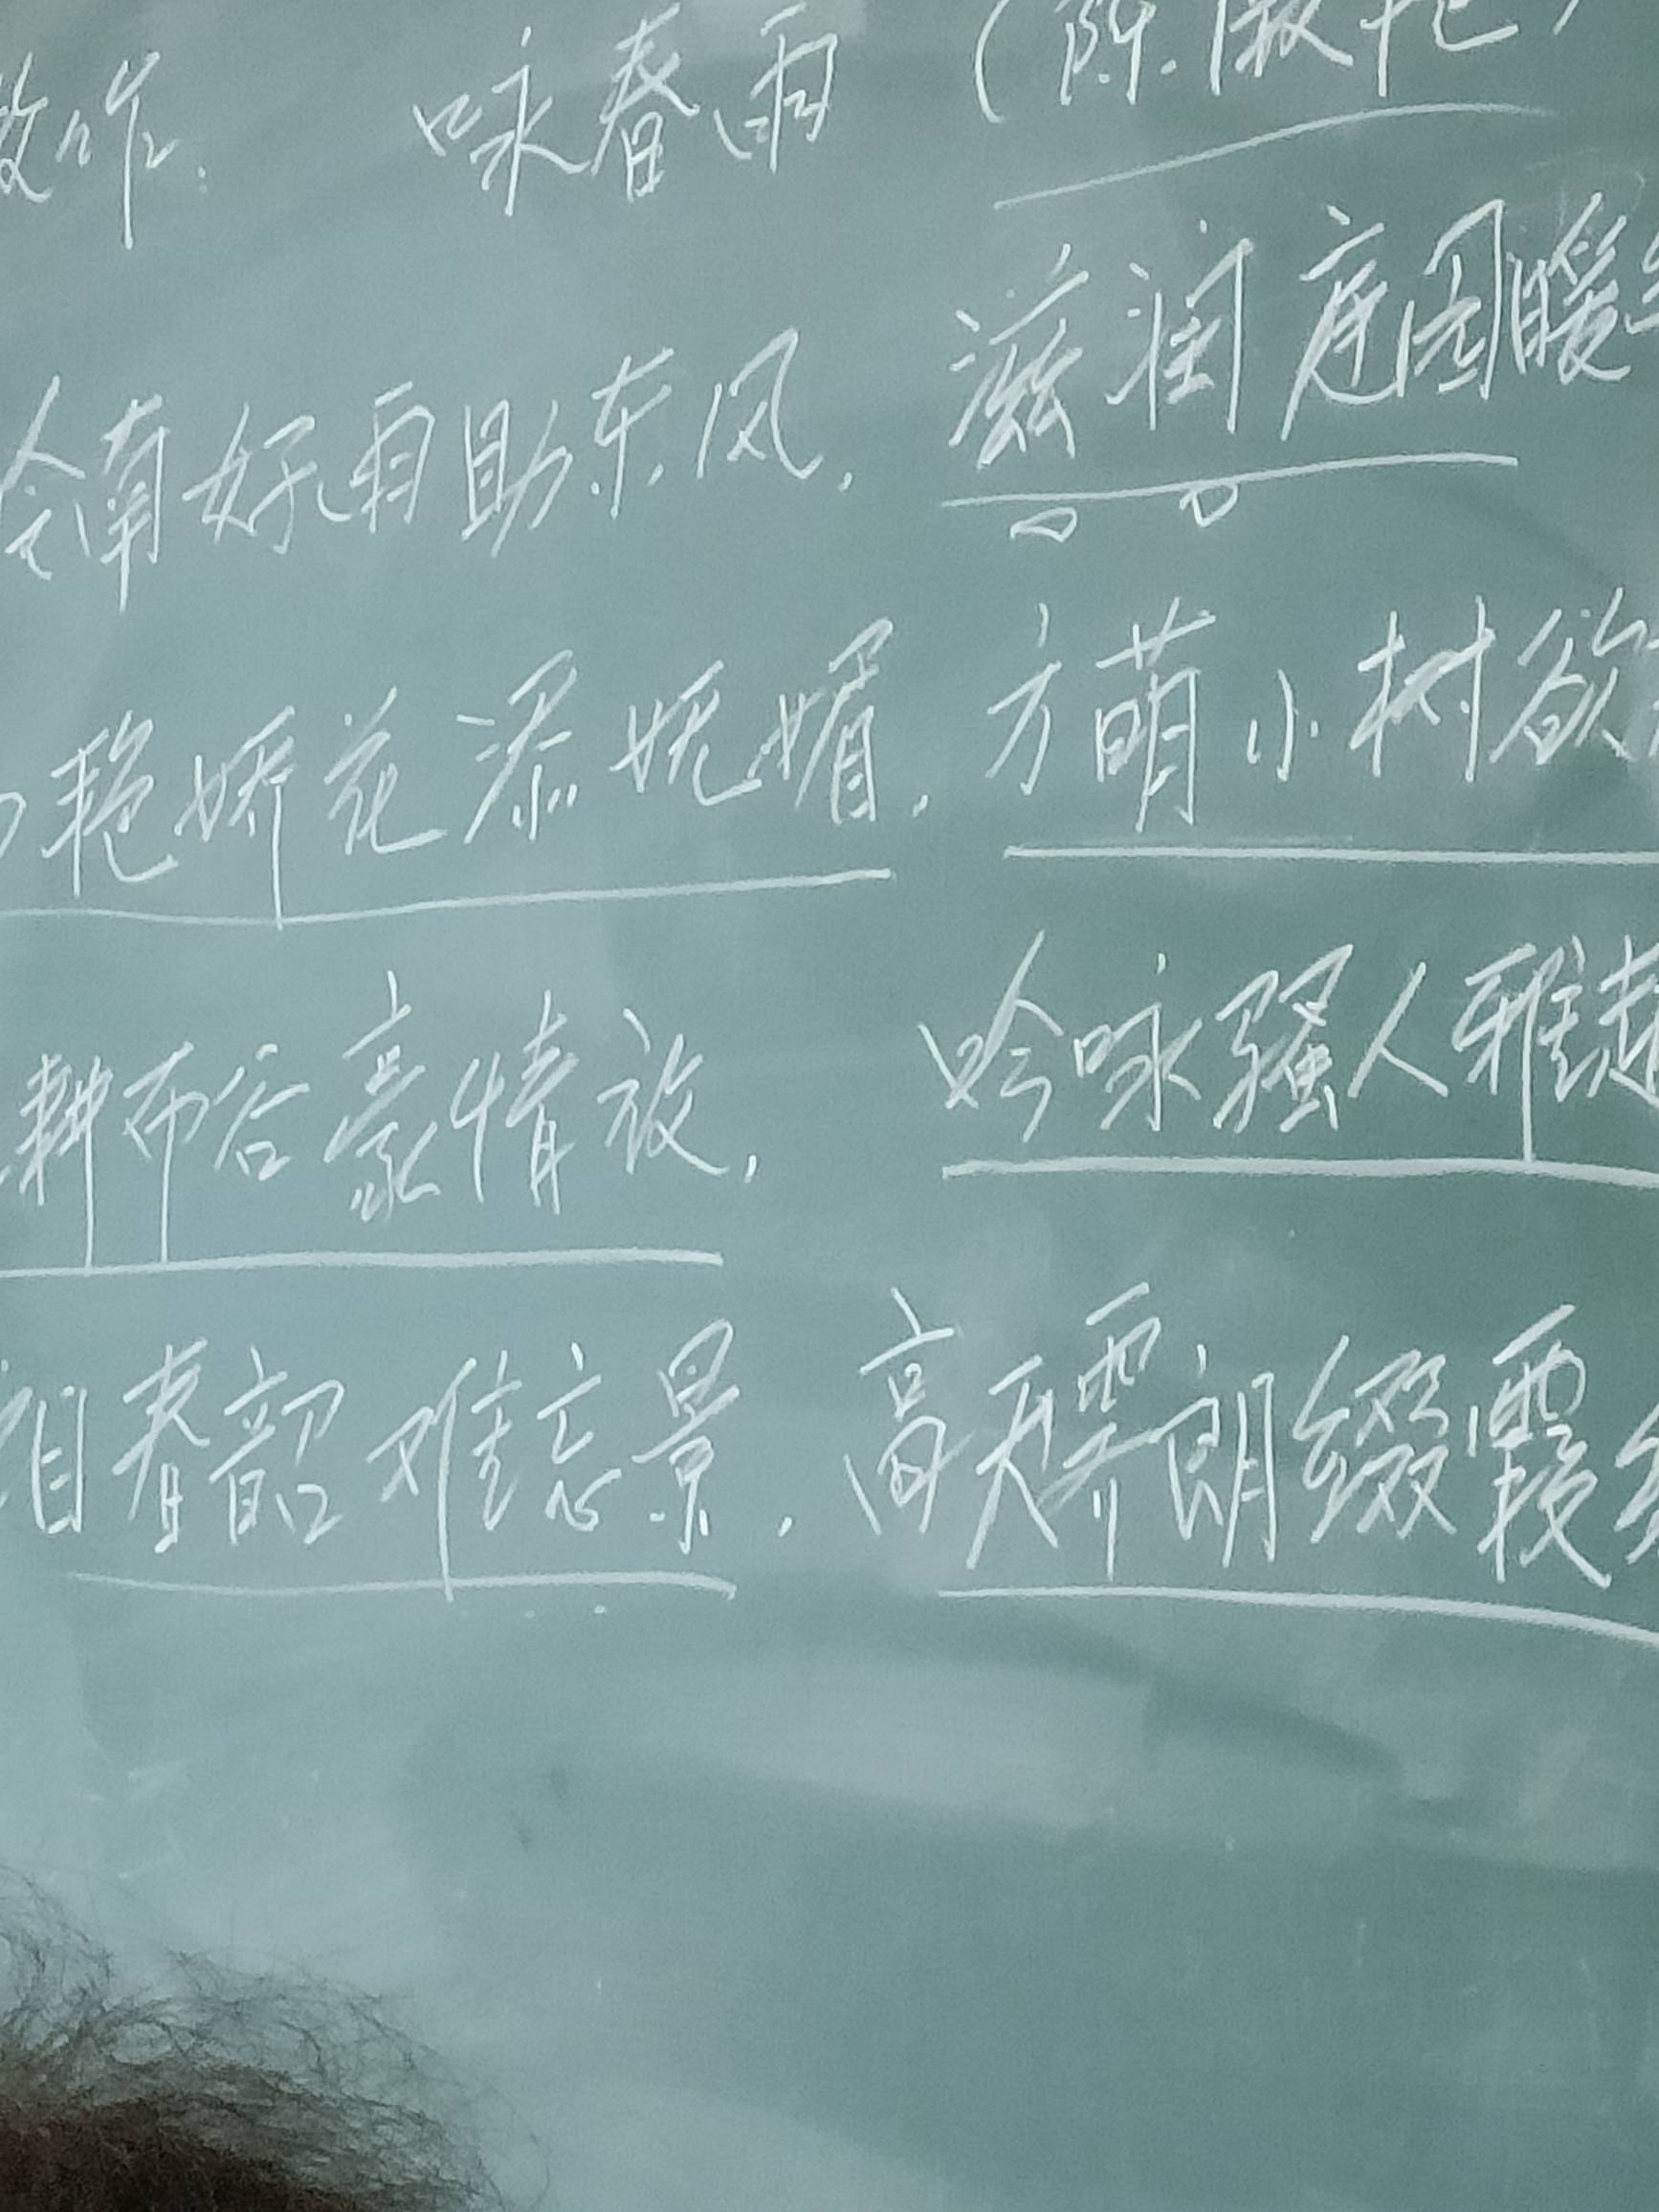 改作. 咏春雨 (陈淑艳
岭南好雨助东风, 滋润庭园暖
艳娇花添妩媚, 方萌小树欲
耕布谷豪情放, 吟咏骚人雅趣
眉春韶难忘景, 高天霁朗缀霞